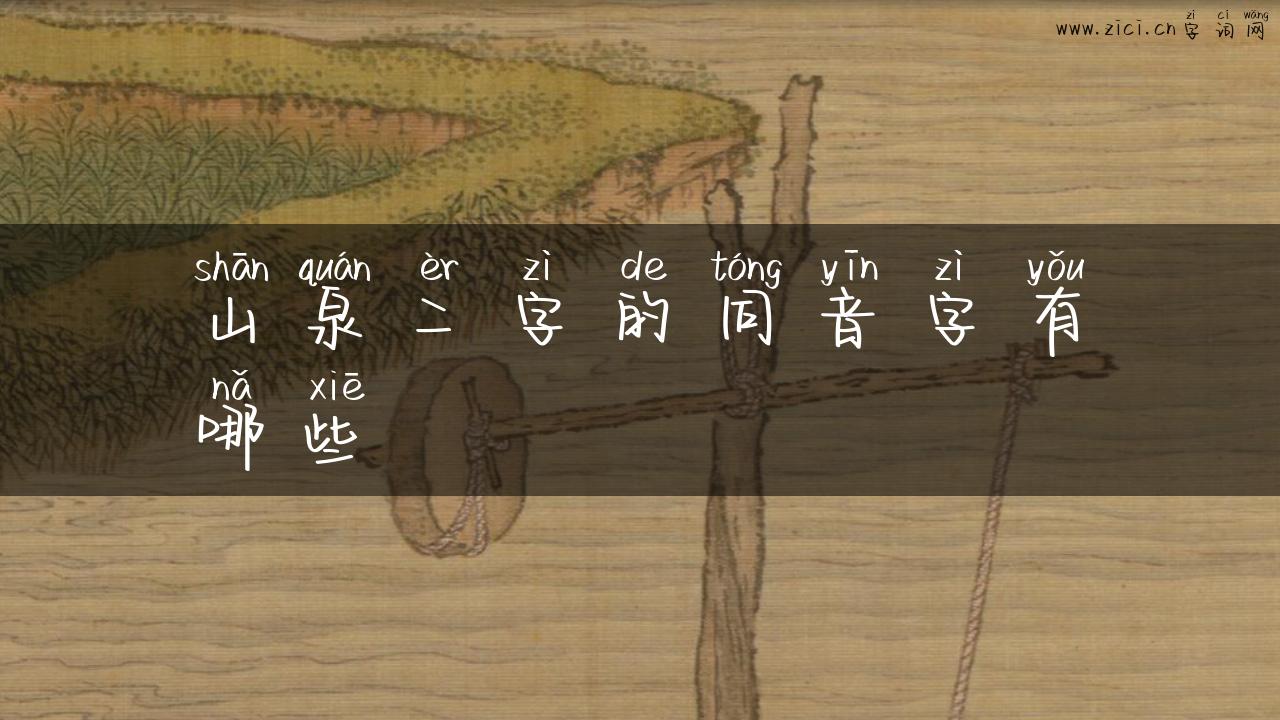 zì cí wǎng
www.zici.cn 字词网
shān quán èr zì de tóng yīn zì yǒu
山泉二字的同音字有
nǎ xiē
哪些